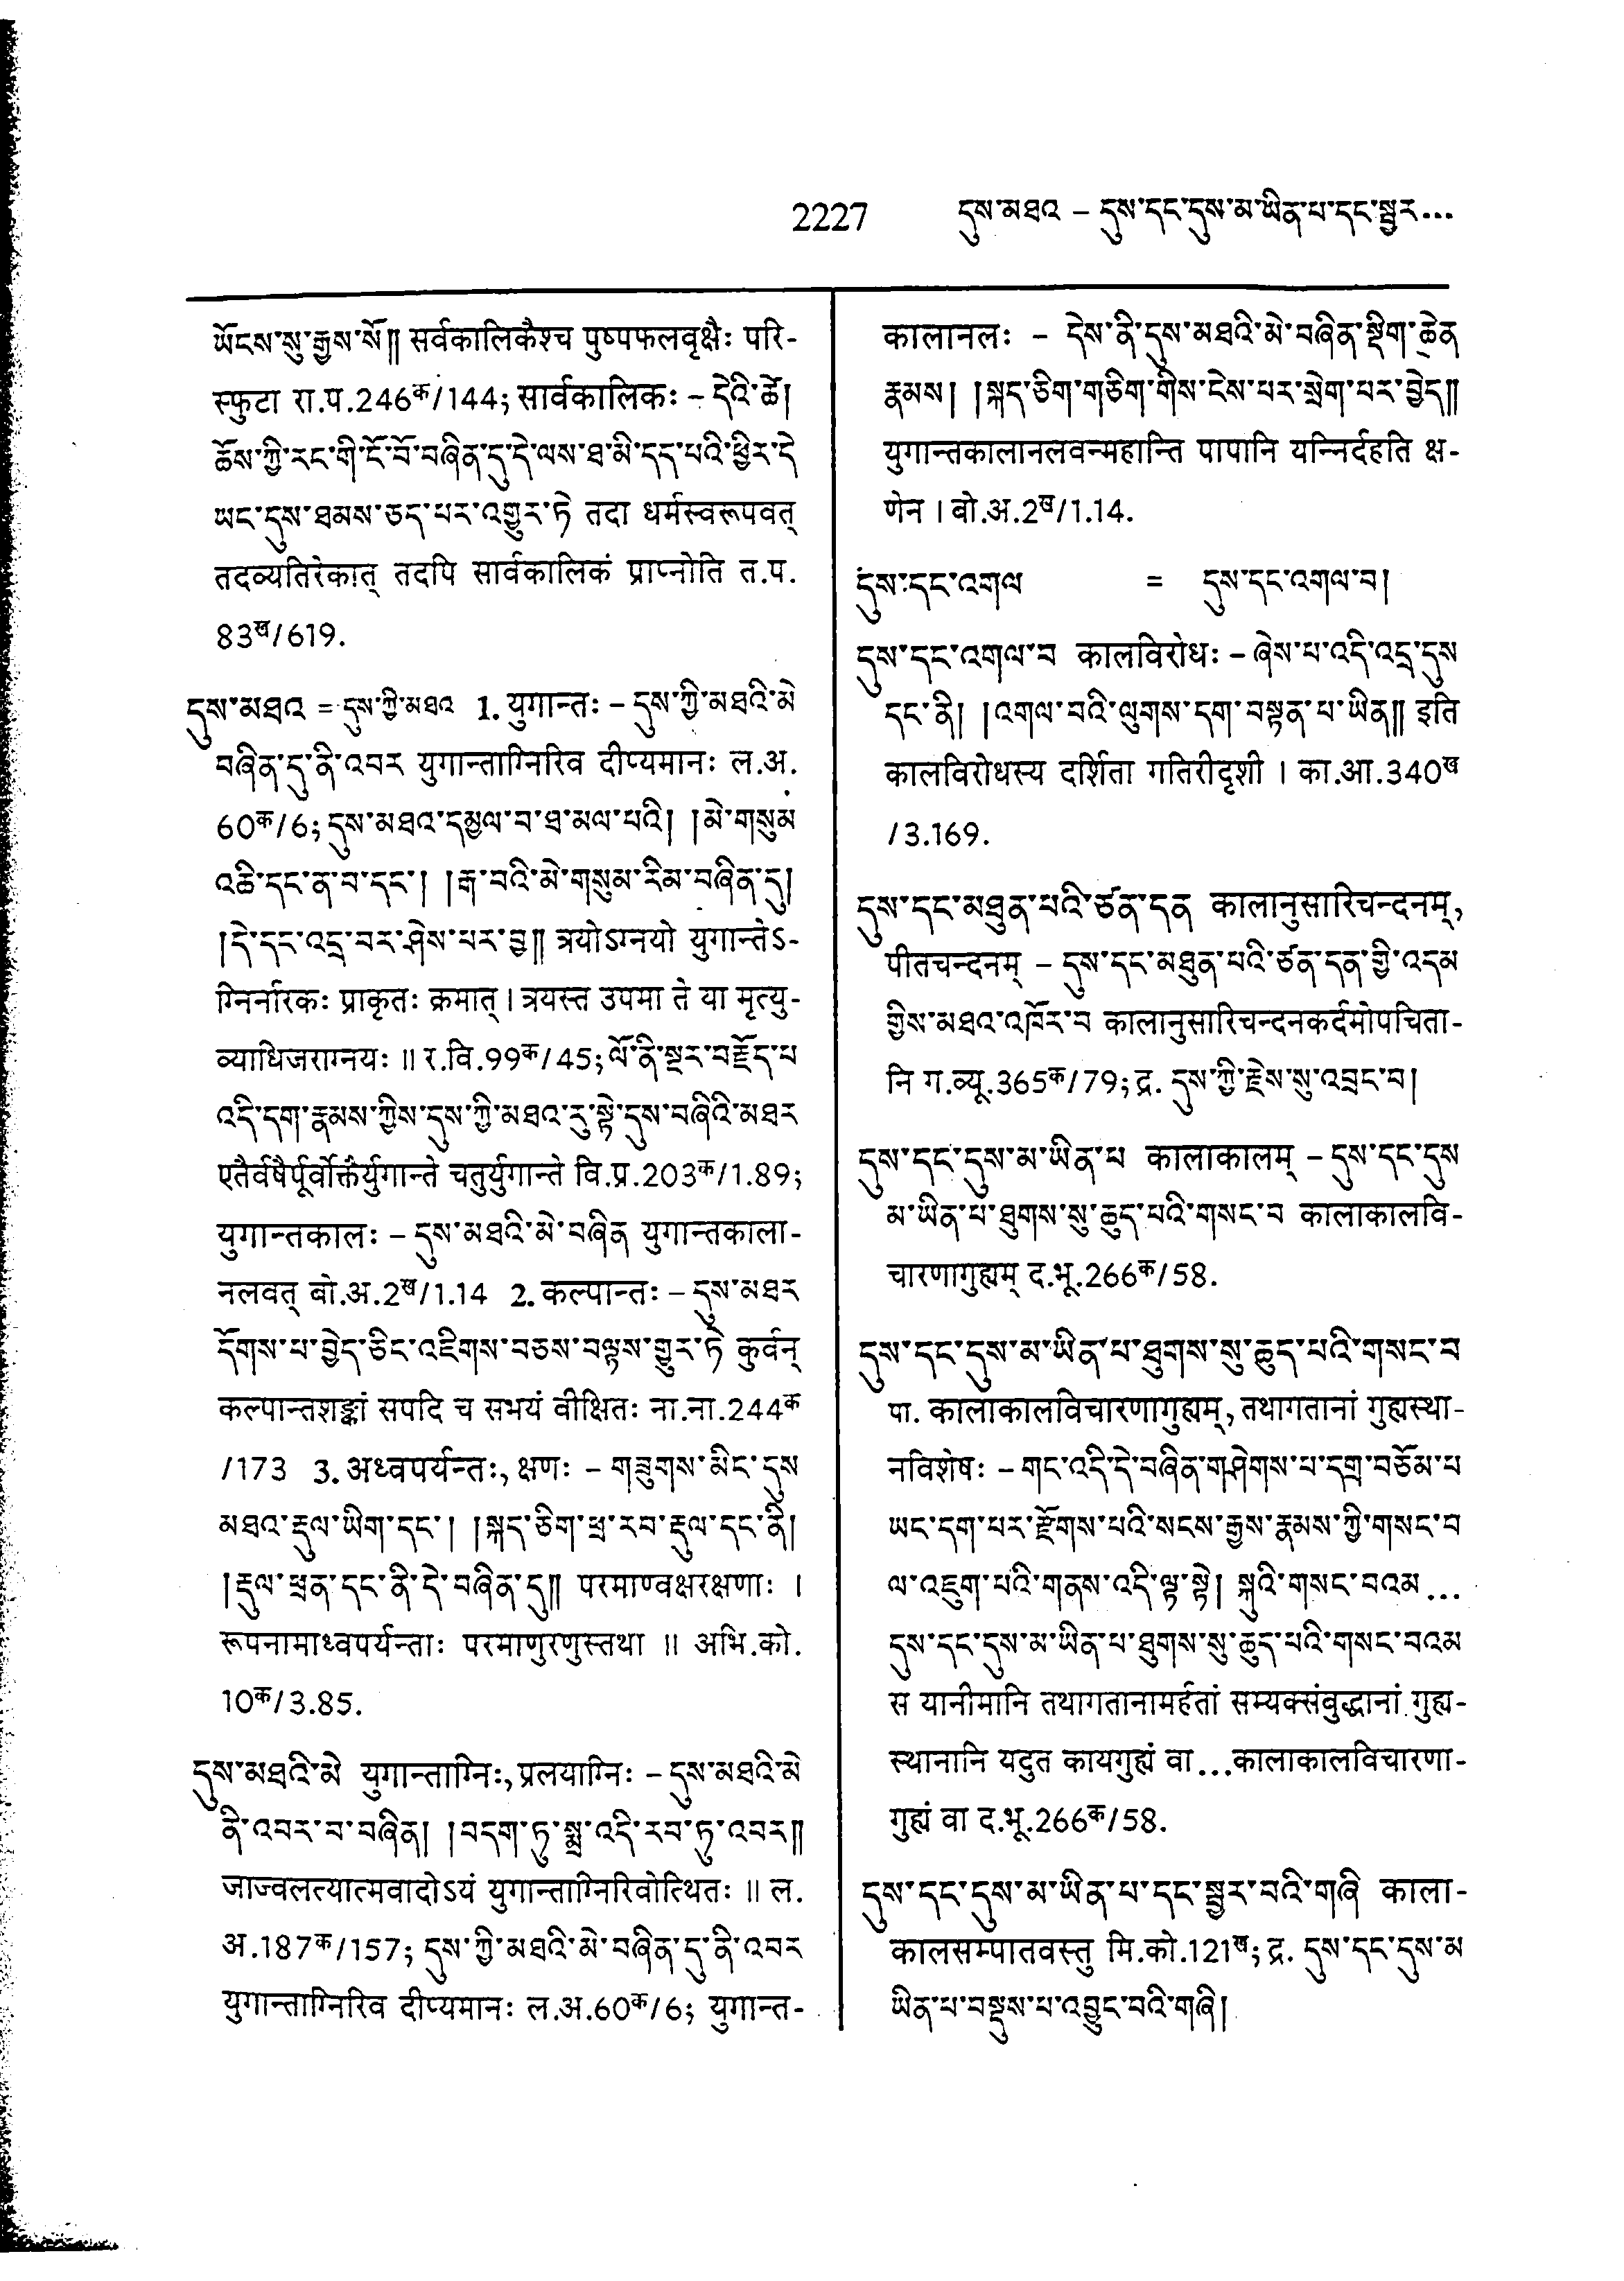 2227 དུས་མཐའ – དུས་དང་དུས་མ་ཡིན་པ་དང་སྦྱར...
ཡོངས་སུ་རྒྱས་སོ༎ सर्वकालिकैश्च पुष्पफलवृक्षैः परि-
स्फुटा रा.प.246क/144; सार्वकालिकः – དེའི་ཚེ།
ཆོས་ཀྱི་རང་གི་ངོ་བོ་བཞིན་དུ་དེ་ལས་ཐ་མི་དད་པའི་ཕྱིར་དེ
ཡང་དུས་ཐམས་ཅད་པར་འགྱུར་ཏེ तदा धर्मस्वरूपवत्
तदव्यतिरेकात् तदपि सार्वकालिकं प्राप्नोति त.प.
83ख/619.
དུས་མཐའ = དུས་ཀྱི་མཐའ 1. युगान्तः – དུས་ཀྱི་མཐའི་མེ
བཞིན་དུ་ནི་འབར युगान्ताग्निरिव दीप्यमानः ल.अ.
60क/6; དུས་མཐའ་དམྱལ་བ་ཐ་མལ་པའི། །མེ་གསུམ
འཆི་དང་ན་བ་དང་། །རྒ་བའི་མེ་གསུམ་རིམ་བཞིན་དུ།
།དེ་དང་འདྲ་བར་ཤེས་པར་བྱ༎ त्रयोऽग्नयो युगान्तेऽ-
ग्निर्नारकः प्राकृतः क्रमात् । त्रयस्त उपमा ते या मृत्यु-
व्याधिजराग्नयः ॥ र.वि.99क/45; ལོ་ནི་སྔར་བརྗོད་པ
འདི་དག་རྣམས་ཀྱིས་དུས་ཀྱི་མཐའ་རུ་སྟེ་དུས་བཞིའི་མཐར
एतैर्वर्षैर्पूर्वोक्तैर्युगान्ते चतुर्युगान्ते वि.प्र.203क/1.89;
युगान्तकालः – དུས་མཐའི་མེ་བཞིན युगान्तकाला-
नलवत् बो.अ.2ख/1.14 2. कल्पान्तः – དུས་མཐར
དོགས་པ་བྱེད་ཅིང་འཇིགས་བཅས་བལྟས་གྱུར་ཏེ कुर्वन्
कल्पान्तशङ्कां सपदि च सभयं वीक्षितः ना.ना.244क
/173 3. अध्वपर्यन्तः, क्षणः – གཟུགས་མིང་དུས
མཐའ་རྡུལ་ཡིག་དང་། །སྐད་ཅིག་ཕྲ་རབ་རྡུལ་དང་ནི།
།རྡུལ་ཕྲན་དང་ནི་དེ་བཞིན་དུ༎ परमाण्वक्षरक्षणाः ।
रूपनामाध्वपर्यन्ताः परमाणुरणुस्तथा ॥ अभि.को.
10क/3.85.
དུས་མཐའི་མེ युगान्ताग्निः, प्रलयाग्निः – དུས་མཐའི་མེ
ནི་འབར་བ་བཞིན། །བདག་ཏུ་སྨྲ་འདི་རབ་ཏུ་འབར༎
जाज्वलत्यात्मवादोऽयं युगान्ताग्निरिवोत्थितः ॥ ल.
अ.187क/157; དུས་ཀྱི་མཐའི་མེ་བཞིན་དུ་ནི་འབར
युगान्ताग्निरिव दीप्यमानः ल.अ.60क/6; युगान्त-
कालानलः – དེས་ནི་དུས་མཐའི་མེ་བཞིན་སྡིག་ཆེན
རྣམས། །སྐད་ཅིག་གཅིག་གིས་ངེས་པར་སྲེག་པར་བྱེད༎
युगान्तकालानलवन्महान्ति पापानि यन्निर्दहति क्ष-
णेन । बो.अ.2ख/1.14.
དུས་དང་འགལ = དུས་དང་འགལ་བ།
དུས་དང་འགལ་བ कालविरोधः – ཞེས་པ་འདི་འདྲ་དུས
དང་ནི། །འགལ་བའི་ལུགས་དག་བསྟན་པ་ཡིན༎ इति
कालविरोधस्य दर्शिता गतिरीदृशी । का.आ.340ख
/3.169.
དུས་དང་མཐུན་པའི་ཙན་དན कालानुसारिचन्दनम्,
पीतचन्दनम् – དུས་དང་མཐུན་པའི་ཙན་དན་གྱི་འདམ
གྱིས་མཐའ་འཁོར་བ कालानुसारिचन्दनकर्दमोपचिता-
नि ग.व्यू.365क/79; द्र. དུས་ཀྱི་རྗེས་སུ་འབྲང་བ།
དུས་དང་དུས་མ་ཡིན་པ कालाकालम् – དུས་དང་དུས
མ་ཡིན་པ་ཐུགས་སུ་ཆུད་པའི་གསང་བ कालाकालवि-
चारणागुह्यम् द.भू.266क/58.
དུས་དང་དུས་མ་ཡིན་པ་ཐུགས་སུ་ཆུད་པའི་གསང་བ
पा. कालाकालविचारणागुह्यम्, तथागतानां गुह्यस्था-
नविशेषः – གང་འདི་དེ་བཞིན་གཤེགས་པ་དགྲ་བཅོམ་པ
ཡང་དག་པར་རྫོགས་པའི་སངས་རྒྱས་རྣམས་ཀྱི་གསང་བ
ལ་འཇུག་པའི་གནས་འདི་ལྟ་སྟེ། སྐུའི་གསང་བའམ...
དུས་དང་དུས་མ་ཡིན་པ་ཐུགས་སུ་ཆུད་པའི་གསང་བའམ
स यानीमानि तथागतानामर्हतां सम्यक्संबुद्धानां गुह्य-
स्थानानि यदुत कायगुह्यं वा...कालाकालविचारणा-
गुह्यं वा द.भू.266क/58.
དུས་དང་དུས་མ་ཡིན་པ་དང་སྦྱར་བའི་གཞི काला-
कालसम्पातवस्तु मि.को.121ख; द्र. དུས་དང་དུས་མ
ཡིན་པ་བསྡུས་པ་འབྱུང་བའི་གཞི།